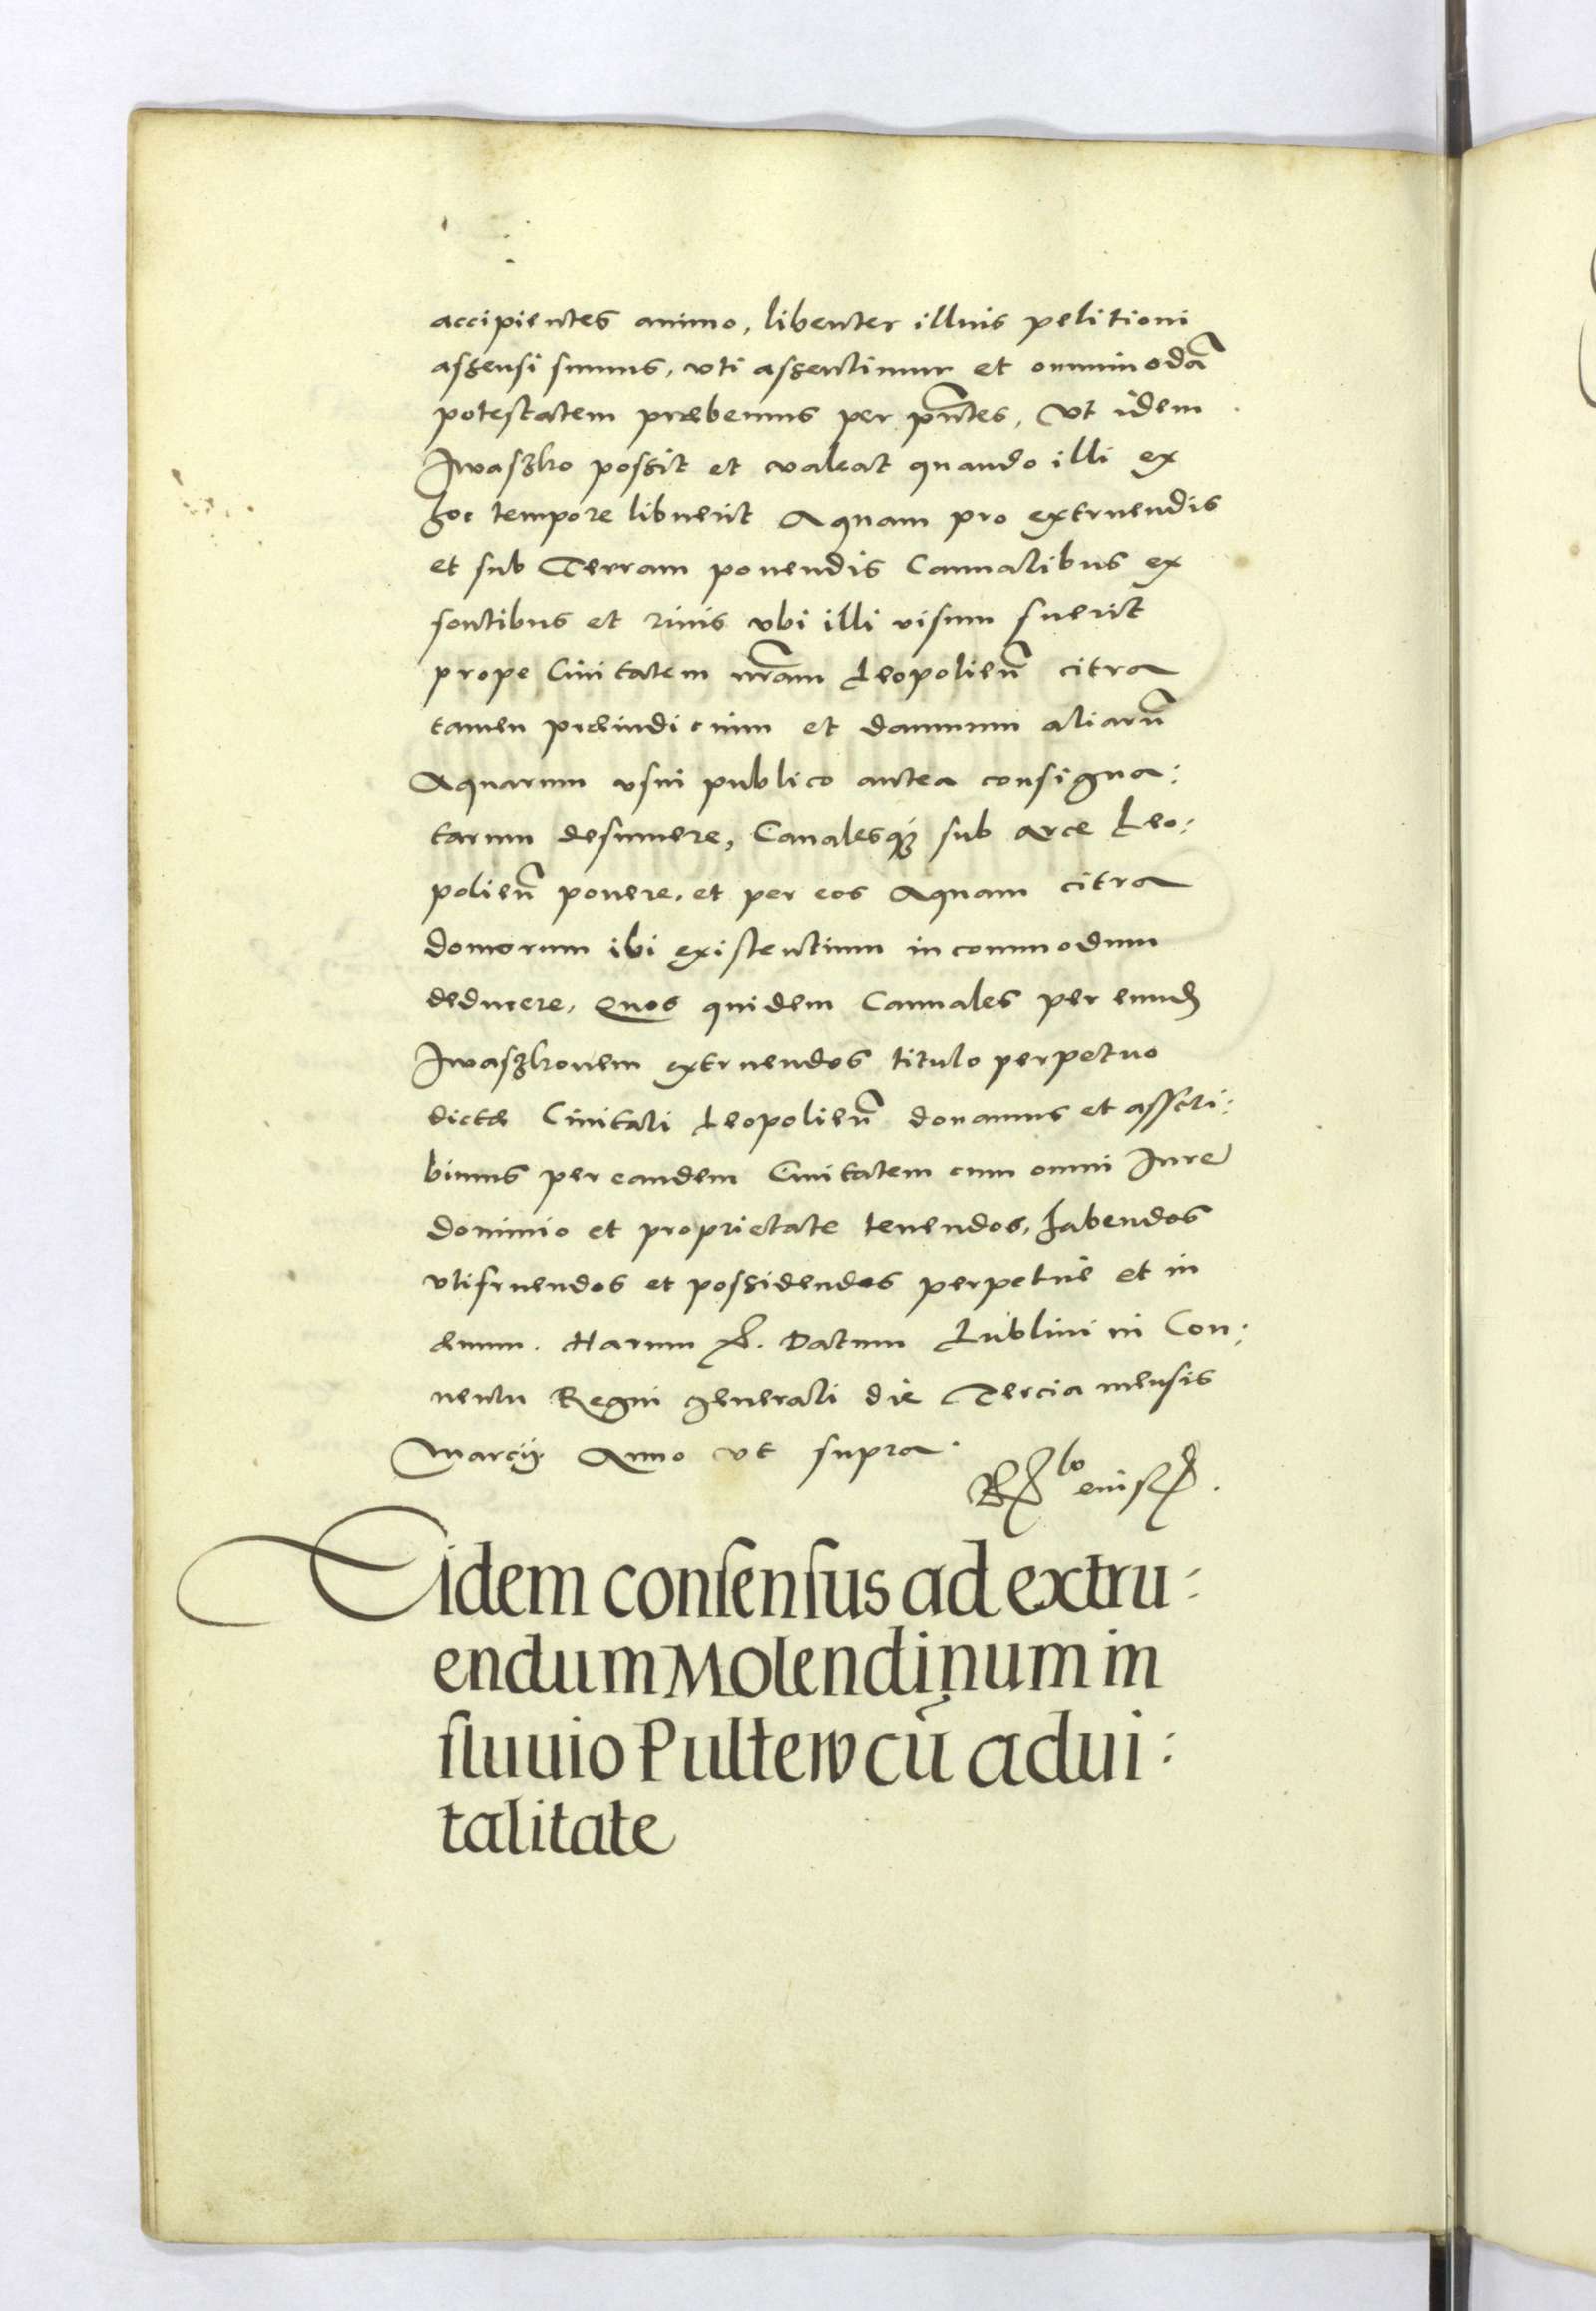 accipientes animo, libenter illius petitioni
assensi sumus, vti assentimur et omnimodã
potestatem præbemus per pñtes, Vt idem
Iwaszko possit et valeat quando illi ex
hoc tempore libuerit Aquam pro extruendis
et sub Terram ponendis Cannalibus ex
fontibus et riuis vbi illi visum fuerit
prope Ciuitatem nr̃am Leopolieñ citra
tamen præiudicium et damnum aliarũ
Aquarum vsui publico antea consigna:
tarum desumere, Canalesq3 sub arce Leo:
polieñ ponere, et per eos Aquam citra
domorum ibi existentium incommodum
deducere, Quos quidem Cannales per eund
Iwaszkonem extruendos titulo perpetuo
dictæ Ciuitati Leopolieñ donamus et asscri:
bimus per eandem Ciuitatem cum omni Iure
dominio et proprietate tenendos, habendos
vtifruendos et possidendos perpetuè et in
æuum. Harum &. Datum Lublini in Con:
uentu Regni generali die Tercia mensis
Marcij Anno vt supra.
Eidem consensus ad extru:
endum Molendinum in
fluuio Pultew cũ adui:
talitate